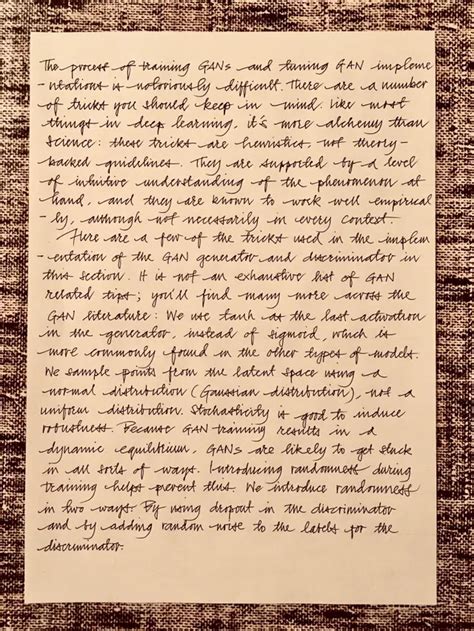 The process of training GANs and tuning GAN impleme
-ntations is notoriously difficult. There are a number
of tricks you should keep in mind. like most
things in deep learning, it's more alchemy than
science: these tricks are heuristics, not theory-
backed guidelines. They are supported by a level
of intuitive understanding of the phenomenon at
hand, and they are known to work well empirical
-ly, although not necessarily in every context.
Here are a few of the tricks used in the implem
-entation of the GAN generator and discriminator in
this section. It is not an exhaustive list of GAN
related tips; you'll find many more across the
GAN literature: We use tanh as the last activation
in the generator, instead of sigmoid, which is
more commonly found in the other types of models.
We sample points from the latent space using a
normal distribution (Gaussian distribution), not a
uniform distribution. Stochasticity is good to induce
robustness. Because GAN training results in a
dynamic equilibrium, GANs are likely to get stuck
in all sorts of ways. Introducing randomness during
training helps prevent this. We introduce randomness
in two ways. By using dropout in the discriminator
and by adding random noise to the labels for the
discriminator.